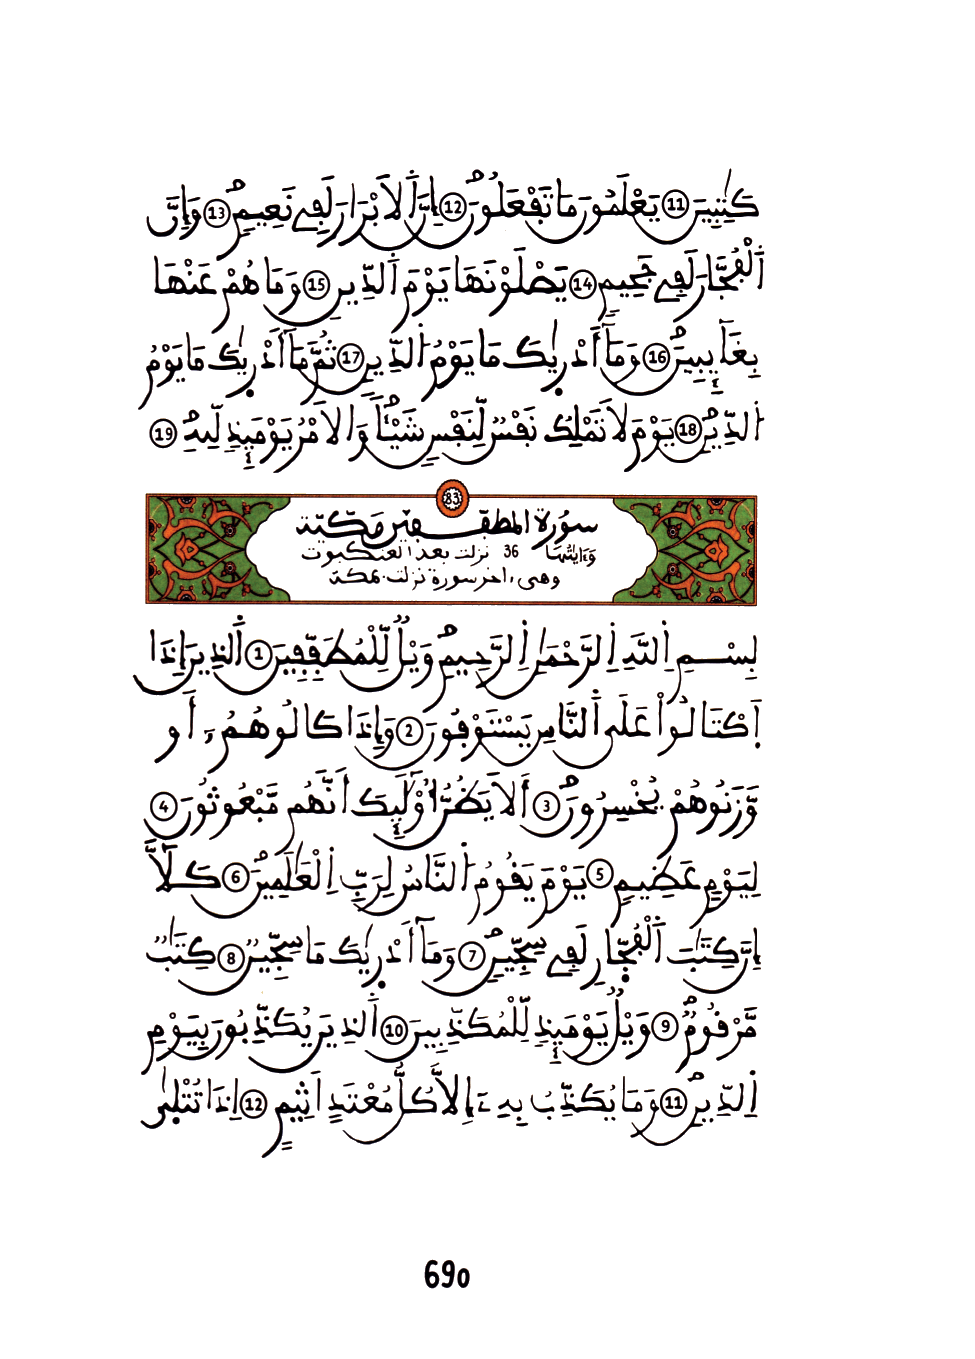 كَٰتِبِينَ 11 يَعْلَمُونَ مَا تَفْعَلُونَ 12 إِنَّ اَ۬لَابْرَارَ لَفِے نَعِيمٖ 13 وَإِنَّ
اَ۬لْفُجَّارَ لَفِے جَحِيمٖ 14 يَصْلَوْنَهَا يَوْمَ اَ۬لدِّينِ 15 وَمَا هُمْ عَنْهَا
بِغَآئِبِينَ 16 وَمَآ أَدْر۪ىٰكَ مَا يَوْمُ اُ۬لدِّينِ 17 ثُمَّ مَآ أَدْر۪ىٰكَ مَا يَوْمُ
اُ۬لدِّينِ 18 يَوْمَ لَا تَمْلِكُ نَفْسٞ لِّنَفْسٖ شَيْـٔاٗ وَالَامْرُ يَوْمَئِذٖ لِّلهِ 19
83
سورة المطففين مكية
وءاياتها 36 نزلت بعد العنكبوت
وهي ءاخر سورة نزلت بمكة
بِسْمِ اِ۬للَّهِ اِ۬لرَّحْمَٰنِ اِ۬لرَّحِيمِ وَيْلٞ لِّلْمُطَفِّفِينَ 1 اَ۬لذِينَ إِذَا
اَ۪كْتَالُواْ عَلَى اَ۬لنَّاسِ يَسْتَوْفُونَ 2 وَإِذَا كَالُوهُمُۥٓ أَو
وَّزَنُوهُمْ يُخْسِرُونَ 3 أَلَا يَظُنُّ أُوْلَٰٓئِكَ أَنَّهُم مَّبْعُوثُونَ 4
لِيَوْمٍ عَظِيمٖ 5 يَوْمَ يَقُومُ اُ۬لنَّاسُ لِرَبِّ اِ۬لْعَٰلَمِينَ 6 كَلَّآ
إِنَّ كِتَٰبَ اَ۬لْفُجّ۪ارِ لَفِے سِجِّينٖ 7 وَمَآ أَدْر۪ىٰكَ مَا سِجِّينٞ 8 كِتَٰبٞ
مَّرْقُومٞ 9 وَيْلٞ يَوْمَئِذٖ لِّلْمُكَذِّبِينَ 10 اَ۬لذِينَ يُكَذِّبُونَ بِيَوْمِ
اِ۬لدِّينِ 11 وَمَا يُكَذِّبُ بِهِۦٓ إِلَّا كُلُّ مُعْتَدٍ اَثِيمٍ 12 اِذَا تُتْل۪ىٰ
690